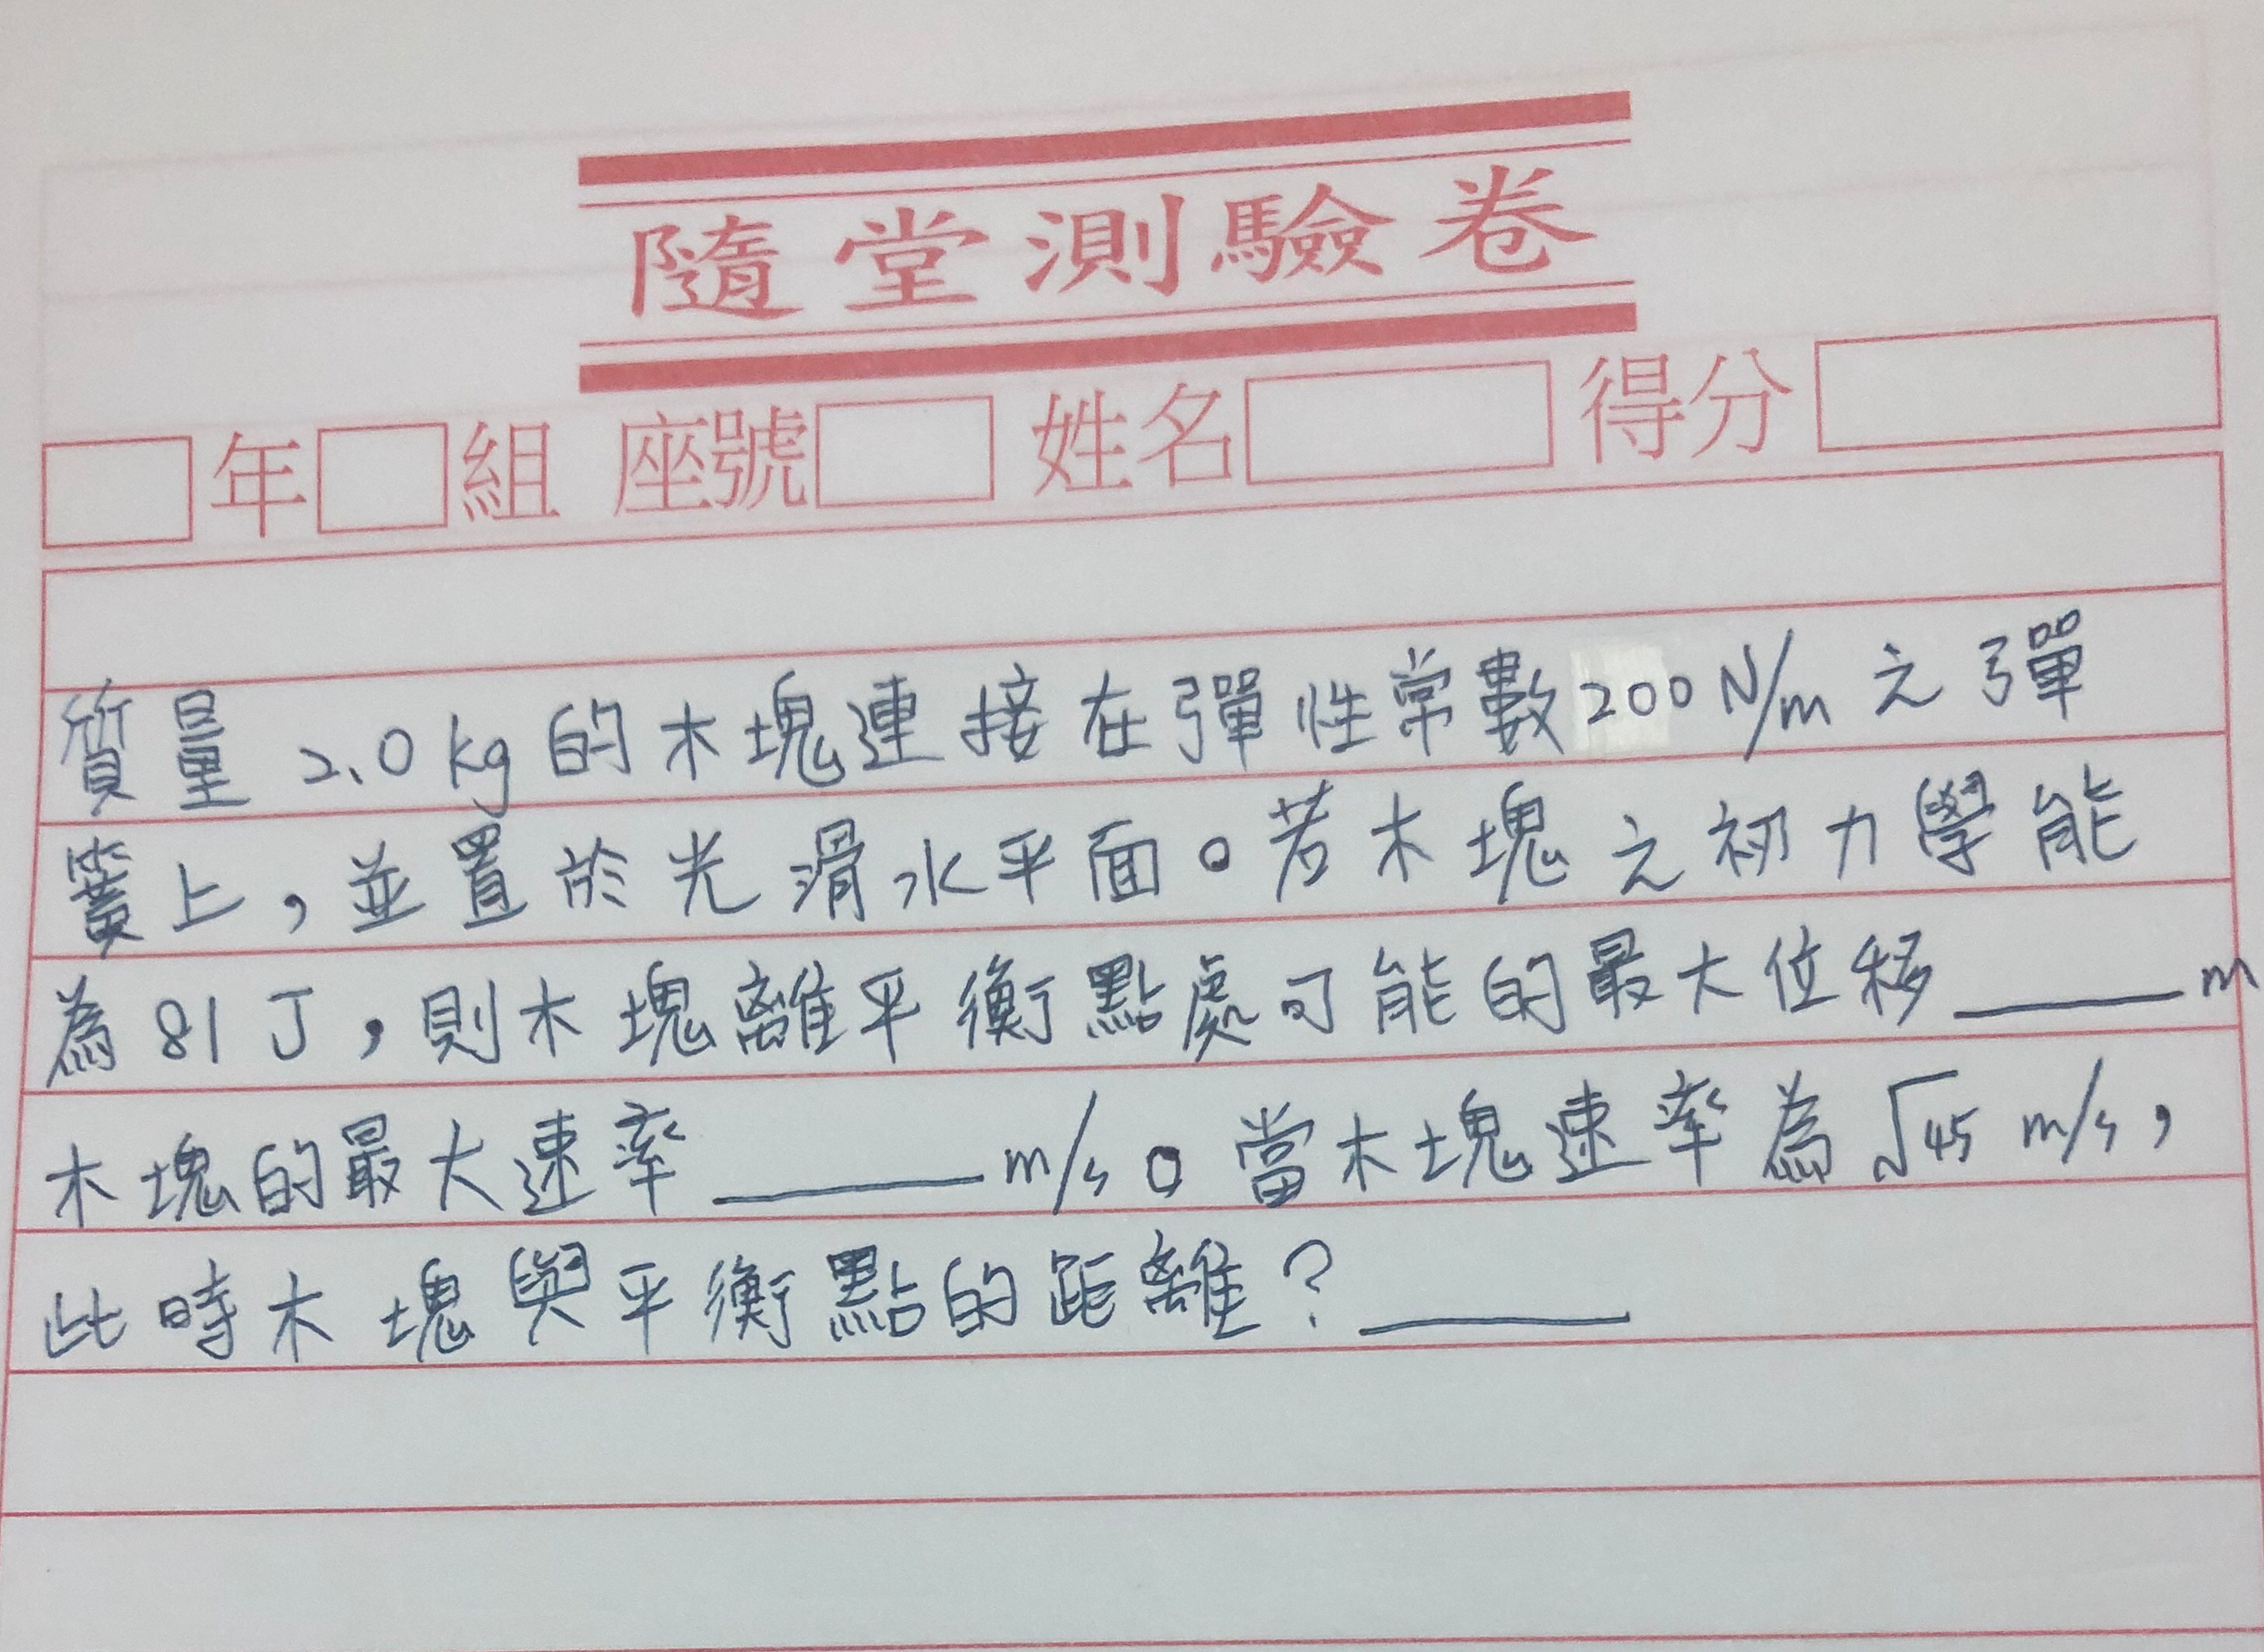 隨堂測驗卷
年 組 座號 姓名 得分
質量 2.0 kg 的木塊連接在彈性常數 200 N/m 之彈
簧上，並置於光滑水平面。若木塊之初力學能
為 81 J，則木塊離平衡點處可能的最大位移______m
木塊的最大速率______m/s。當木塊速率為 √45 m/s，
此時木塊與平衡點的距離？______